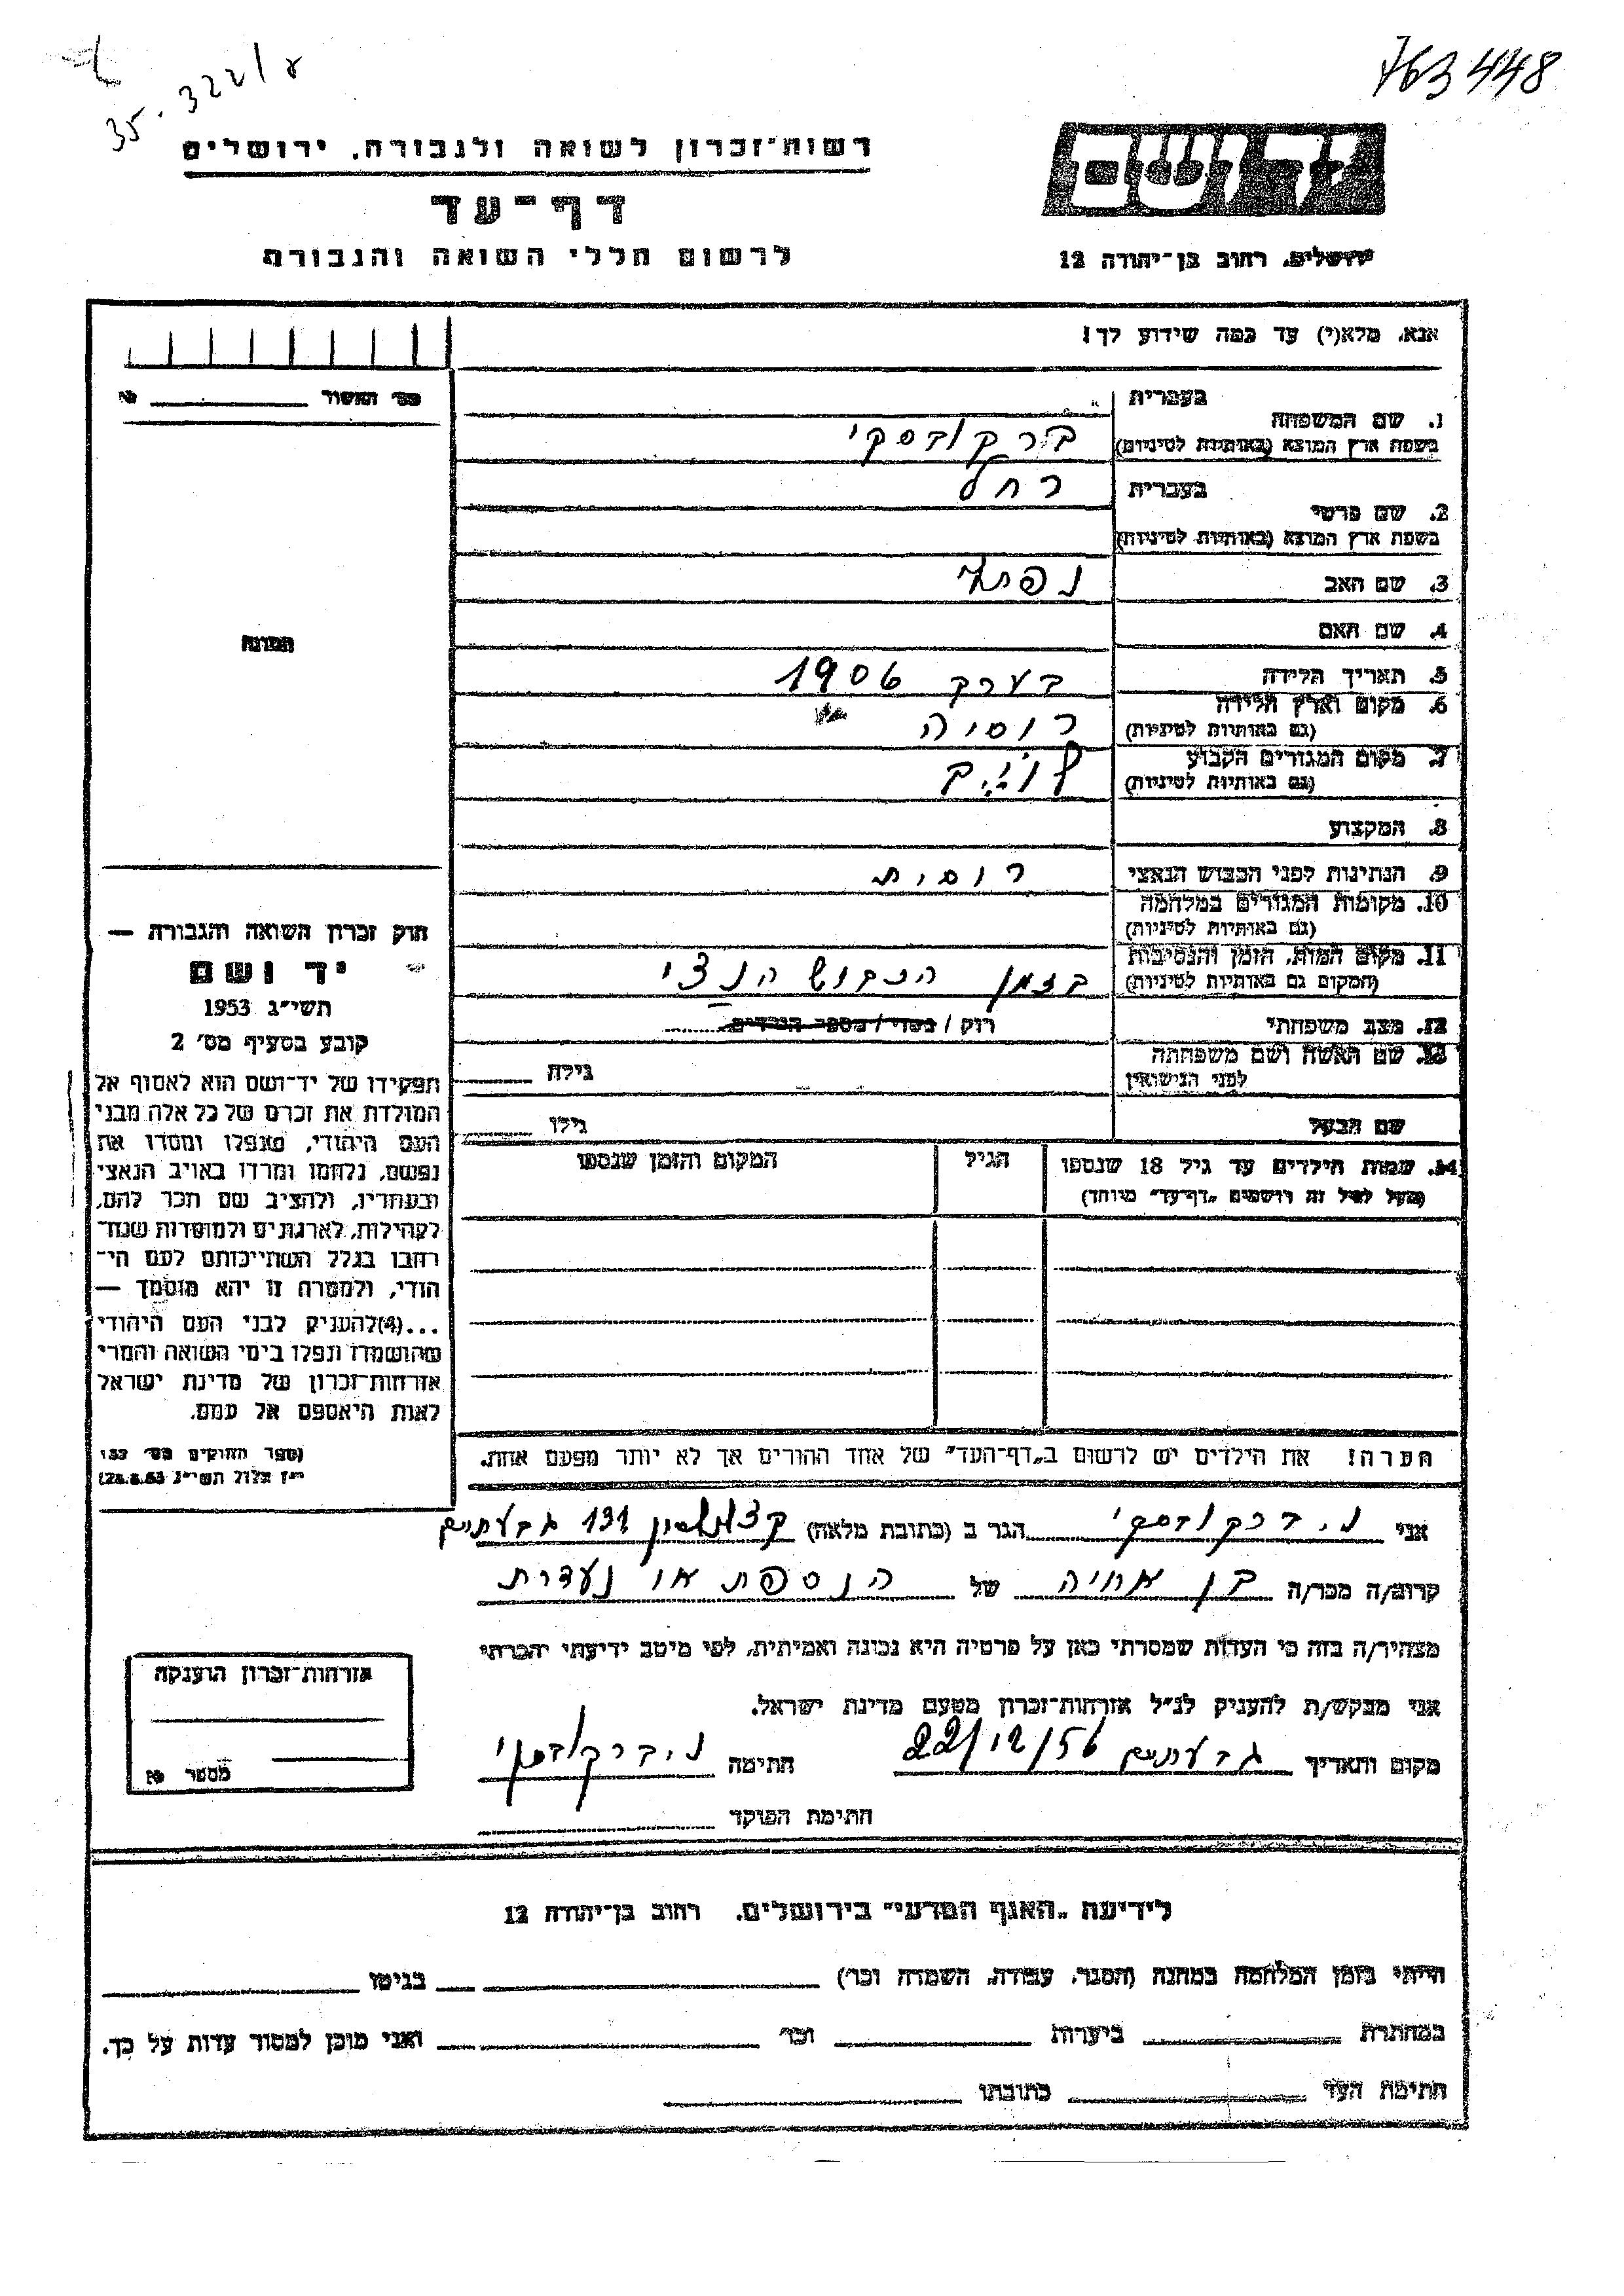 35.322/א
763448
רשות־זכרון לשואה ולגבורה, ירושלים
דף־עד
לרשום חללי השואה והגבורה
יד ושם
ירושלים, רחוב בן־יהודה 12
אנא, מלא(י) עד כמה שידוע לך!
מס׳ האשור
תמונה
1. שם המשפחה
בעברית
בשפת ארץ המוצא (באותיות לטיניות)
ברקובסקי
2. שם פרטי
בעברית רחל
בשפת ארץ המוצא (באותיות לטיניות)
3. שם האב נפתלי
4. שם האם
5. תאריך הלידה בערך 1906
6. מקום וארץ הלידה
(גם באותיות לטיניות) רוסיה
7. מקום המגורים הקבוע
(גם באותיות לטיניות)
8. המקצוע
9. הנתינות לפני הכבוש הנאצי רוסית
10. מקומות המגורים במלחמה
(גם באותיות לטיניות)
11. מקום המות, הזמן והנסיבות
(המקום גם באותיות לטיניות) בזמן הכבוש הנצי
12. מצב משפחתי רוק / נשוי / מספר הילדים
13. שם האשה ושם משפחתה
לפני הנישואין גילה
שם הבעל גילו
14. שמות הילדים עד גיל 18 שנספו הגיל המקום והזמן שנספו
(מעל לגיל זה רושמים „דף־עד” מיוחד)
הערה! את הילדים יש לרשום ב„דף־העד” של אחד ההורים אך לא יותר מפעם אחת.
חוק זכרון השואה והגבורה —
יד ושם
תשי״ג 1953
קובע בסעיף מס׳ 2
תפקידו של יד־ושם הוא לאסוף אל
המולדת את זכרם של כל אלה מבני
העם היהודי, שנפלו ומסרו את
נפשם, נלחמו ומרדו באויב הנאצי
ובעוזריו, ולהציב שם וזכר להם,
לקהילות, לארגונים ולמוסדות שנח־
רבו בגלל השתייכותם לעם הי־
הודי, ולמטרה זו יהא מוסמך —
...(4)להעניק לבני העם היהודי
שהושמדו ונפלו בימי השואה והמרי
אזרחות־זכרון של מדינת ישראל
לאות היאספם אל עמם.
(ספר החוקים מס׳ 132
י״ז אלול תשי״ג 28.8.53)
אני נ. ברקובסקי הגר ב (כתובת מלאה) קצנלסון 131 גבעתיים
קרוב/ה מכר/ה בן אחיה של הנספת או נעדרת
מצהיר/ה בזה כי העדות שמסרתי כאן על פרטיה היא נכונה ואמיתית, לפי מיטב ידיעתי והכרתי
אני מבקש/ת להעניק לנ״ל אזרחות־זכרון מטעם מדינת ישראל.
מקום ותאריך גבעתיים 22/12/56 חתימה נ. ברקובסקי
חתימת הפוקד
אזרחות־זכרון הוענקה
מספר
לידיעת „האגף המדעי” בירושלים, רחוב בן־יהודה 12
הייתי בזמן המלחמה במחנה (הסגר, עבודה, השמדה וכו׳) בגיטו
במחתרת ביערות וכו׳ ואני מוכן למסור עדות על כך.
חתימת העד כתובתו